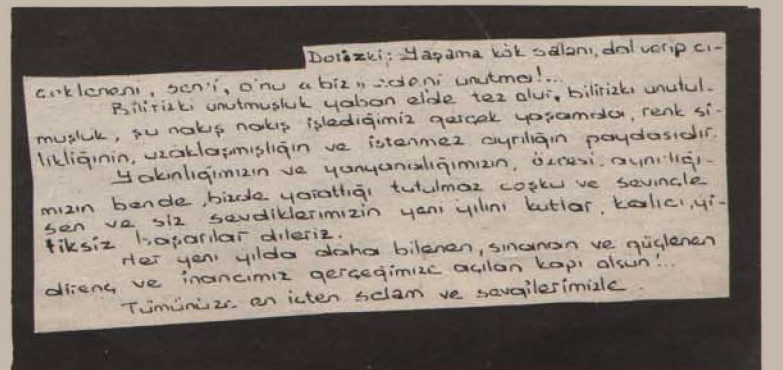 Yaşama kök salanı, dal verip çi-
çekleneni, sen'i, o'nu „biz" edeni unutma!...
Bilirizki unutmuşluk yaban elde tez olur, bilirizki unutul-
muşluk, şu nakış nakış işlediğimiz gerçek yaşamda, renk si-
likliğinin, uzaklaşmışlığın ve istenmez ayrılığın paydasıdır.
Yakınlığımızın ve yanyanalığımızın, özcesi aynılığı-
mızın bende, bizde yarattığı tutulmaz coşku ve sevinçle
sen ve siz sevdiklerimizin yeni yılını kutlar, kalıcı, yi-
tiksiz başarılar dileriz.
Her yeni yılda daha bilenen, sınanan ve güçlenen
direnç ve inancımız gerçeğimize açılan kapı olsun!...
Tümünüze en içten selam ve sevgilerimizle.